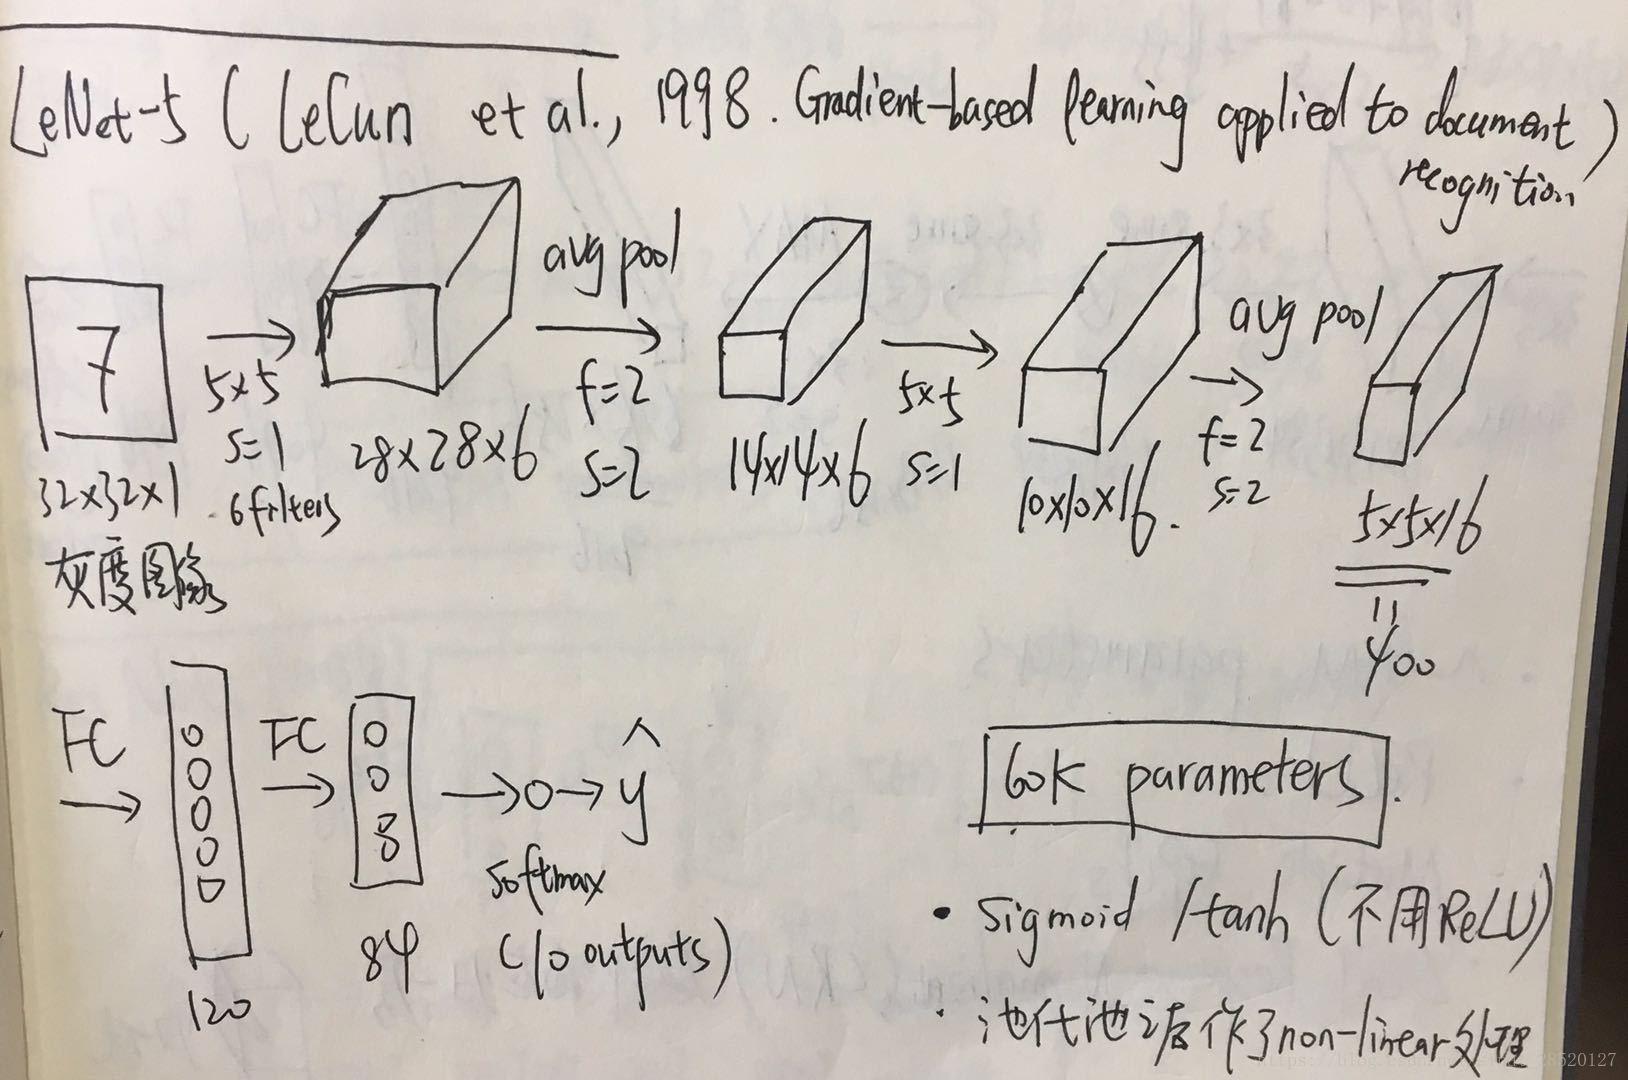 LeNet-5 ( LeCun et al., 1998. Gradient-based learning applied to document
recognition )
7
32×32×1
灰度图像
5×5
s=1
6 filters
28×28×6
avg pool
f=2
s=2
14×14×6
5×5
s=1
10×10×16.
avg pool
f=2
s=2
5×5×16
=
400
FC
120
FC
84
ŷ
softmax
(10 outputs)
60K parameters.
• sigmoid /tanh (不用ReLU)
• 池化 作了non-linear处理
28520127